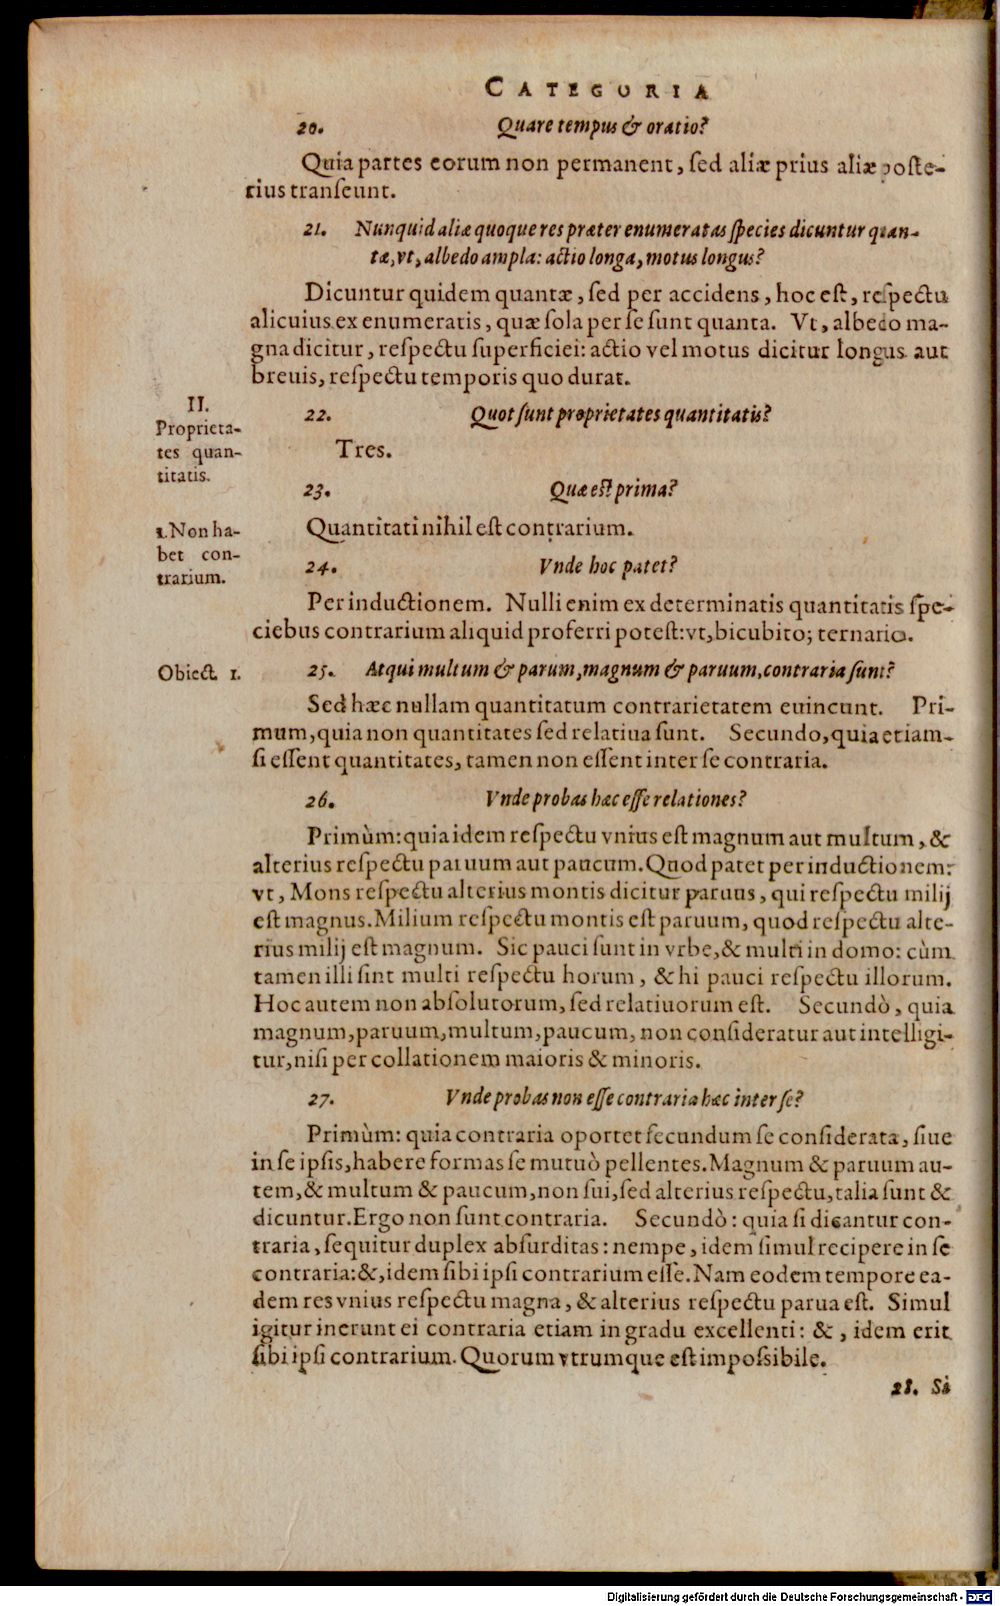 CATEGORIA
20. Quare tempus & oratio?
Quia partes eorum non permanent, sed aliæ priùs aliæ poste-
rius transeunt.
21. Nunquid aliæ quoque res præter enumeratas species dicuntur quan-
tæ, vt, albedo ampla: actio longa, motus longus?
Dicuntur quidem quantæ, sed per accidens, hoc est, respectu
alicuius ex enumeratis, quæ sola per se sunt quanta. Vt, albedo ma-
gna dicitur, respectu superficiei: actio vel motus dicitur longus aut
breuis, respectu temporis quo durat.
II.
Proprieta-
tes quan-
titatis.
22. Quot sunt proprietates quantitatis?
Tres.
23. Quæ est prima?
1. Non ha-
bet con-
trarium.
Quantitati nihil est contrarium.
24. Vnde hoc patet?
Per inductionem. Nulli enim ex determinatis quantitatis spe-
ciebus contrarium aliquid proferri potest: vt, bicubito; ternario.
Obiect. 1.
25. Atqui multum & parum, magnum & paruum, contraria sunt?
Sed hæc nullam quantitatum contrarietatem euincunt. Pri-
mum, quia non quantitates sed relatiua sunt. Secundo, quia etiam-
si essent quantitates, tamen non essent inter se contraria.
26. Vnde probas hæc esse relationes?
Primùm: quia idem respectu vnius est magnum aut multum, &
alterius respectu paruum aut paucum. Quod patet per inductionem:
vt, Mons respectu alterius montis dicitur paruus, qui respectu milij
est magnus. Milium respectu montis est paruum, quod respectu alte-
rius milij est magnum. Sic pauci sunt in vrbe, & multi in domo: cùm
tamen illi sint multi respectu horum, & hi pauci respectu illorum.
Hoc autem non absolutorum, sed relatiuorum est. Secundò, quia
magnum, paruum, multum, paucum, non consideratur aut intelligi-
tur, nisi per collationem maioris & minoris.
27. Vnde probas non esse contraria hæc inter se?
Primùm: quia contraria oportet secundum se considerata, siue
in se ipsis, habere formas se mutuò pellentes. Magnum & paruum au-
tem, & multum & paucum, non sui, sed alterius respectu, talia sunt &
dicuntur. Ergo non sunt contraria. Secundò: quia si dicantur con-
traria, sequitur duplex absurditas: nempe, idem simul recipere in se
contraria: &, idem sibi ipsi contrarium esse. Nam eodem tempore ea-
dem res vnius respectu magna, & alterius respectu parua est. Simul
igitur inerunt ei contraria etiam in gradu excellenti: &, idem erit
sibi ipsi contrarium. Quorum vtrumque est impossibile.
28. Si
Digitalisierung gefördert durch die Deutsche Forschungsgemeinschaft - DFG